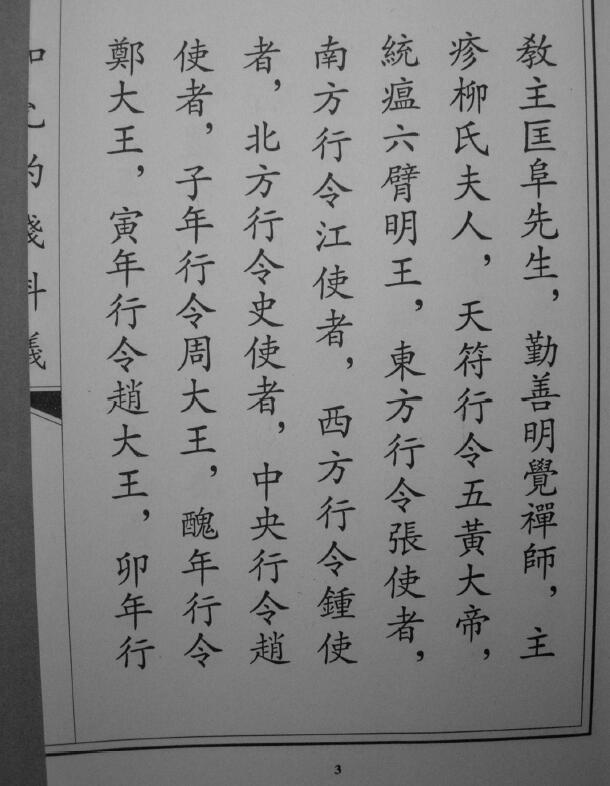 教主匡阜先生，勤善明覺禪師，主
疹柳氏夫人，天符行令五黃大帝，
統瘟六臂明王，東方行令張使者，
南方行令江使者，西方行令鍾使
者，北方行令史使者，中央行令趙
使者，子年行令周大王，醜年行令
鄭大王，寅年行令趙大王，卯年行
3